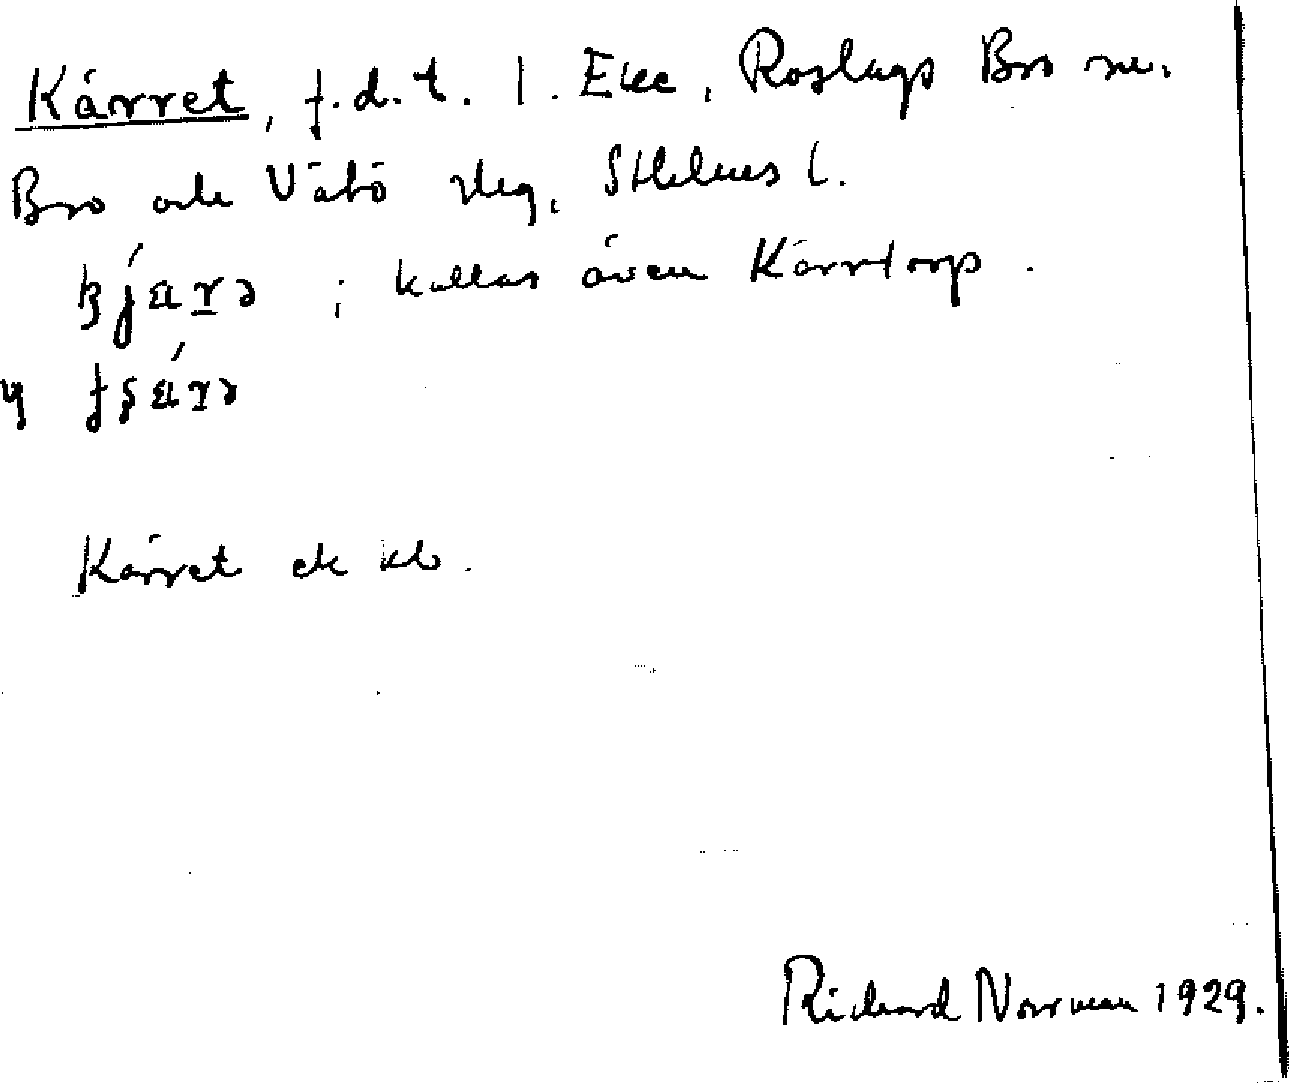 Kärret, f.d.t. l. Eke, Roslags Bro sn.
Bro och Vätö slg, Sthlms l.
; kallas även Kärrtorp.
y
Kärret ek kb.
Richard Norrman 1929.